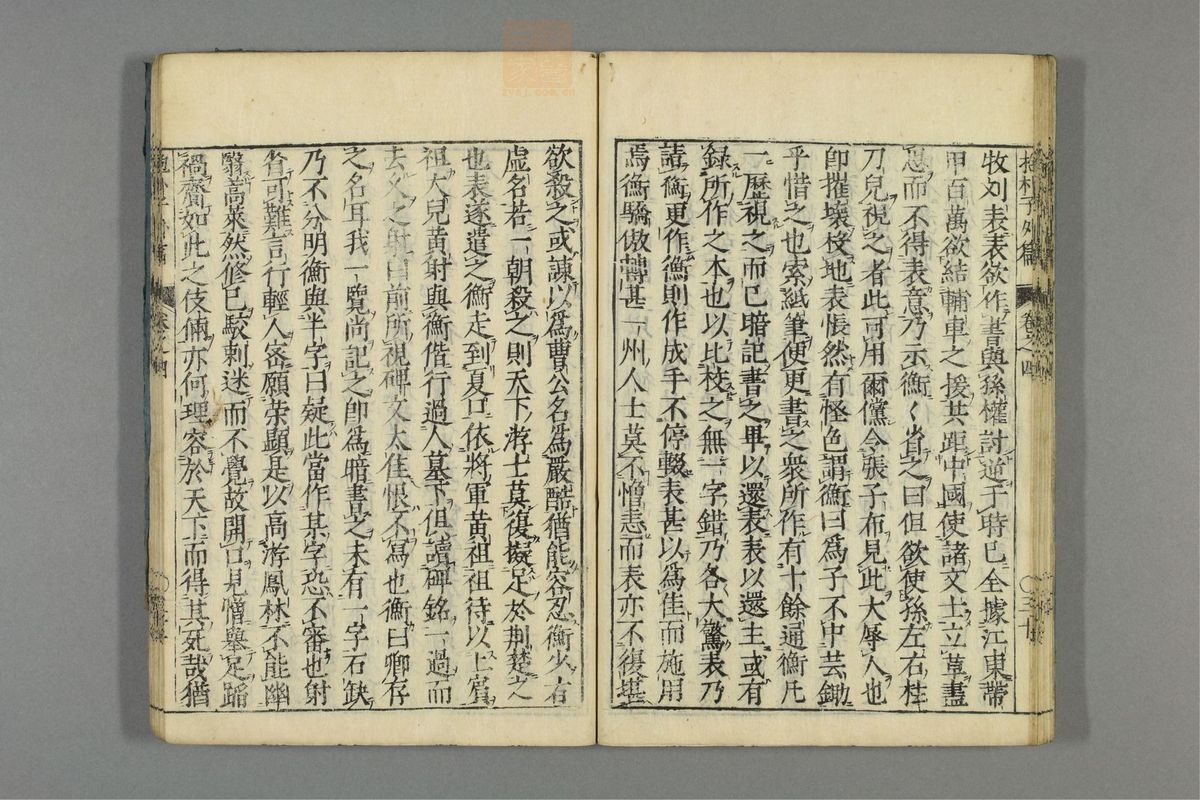 牧刘表表欲作書與孫權討逆于時已全據江東帶
甲百萬欲結輔車之援共距中國使諸文士立草盡
思而不得表意乃示衡〱省之曰但欲使孫左右持
刀兒視之者此可用爾儻令張子布見此大辱人也
即摧壞投地表悵然有怪色謂衡曰爲子不中芸鋤
乎惜之也索紙筆便更書之衆所作有十餘通衡凡
一歷視之而已暗記書之畢以還表表以還主或有
録所作之本也以比校之無一字錯乃各大驚表乃
請衡更作衡則作成手不停輟表甚以爲佳而施用
焉衡驕傲轉甚一州人士莫不憎恚而表亦不復堪
欲殺之或諫以爲曹公名爲嚴酷猶能容忍衡少有
虚名若一朝殺之則天下游士莫復擬足於荆楚之
也表遂遣之衡走到夏口依將軍黃祖祖待以上賓
祖大兒黃射與衡偕行過人墓下俱讀碑銘一過而
去久之射曰前所視碑文大佳恨不寫也衡曰卿存
之名耳我一覽尚記之即爲暗書之末有一字石缺
乃不分明衡與半字曰疑此當作某字恐不審也射
省可難言行輕人密願荣顯是以高游鳳林不能幽
翳蒿萊然修己駁剌迷而不覺故開口見憎舉足蹈
禍齎如此之伎倆亦何理容於天下而得其死哉猶
抱朴子外篇
卷之四